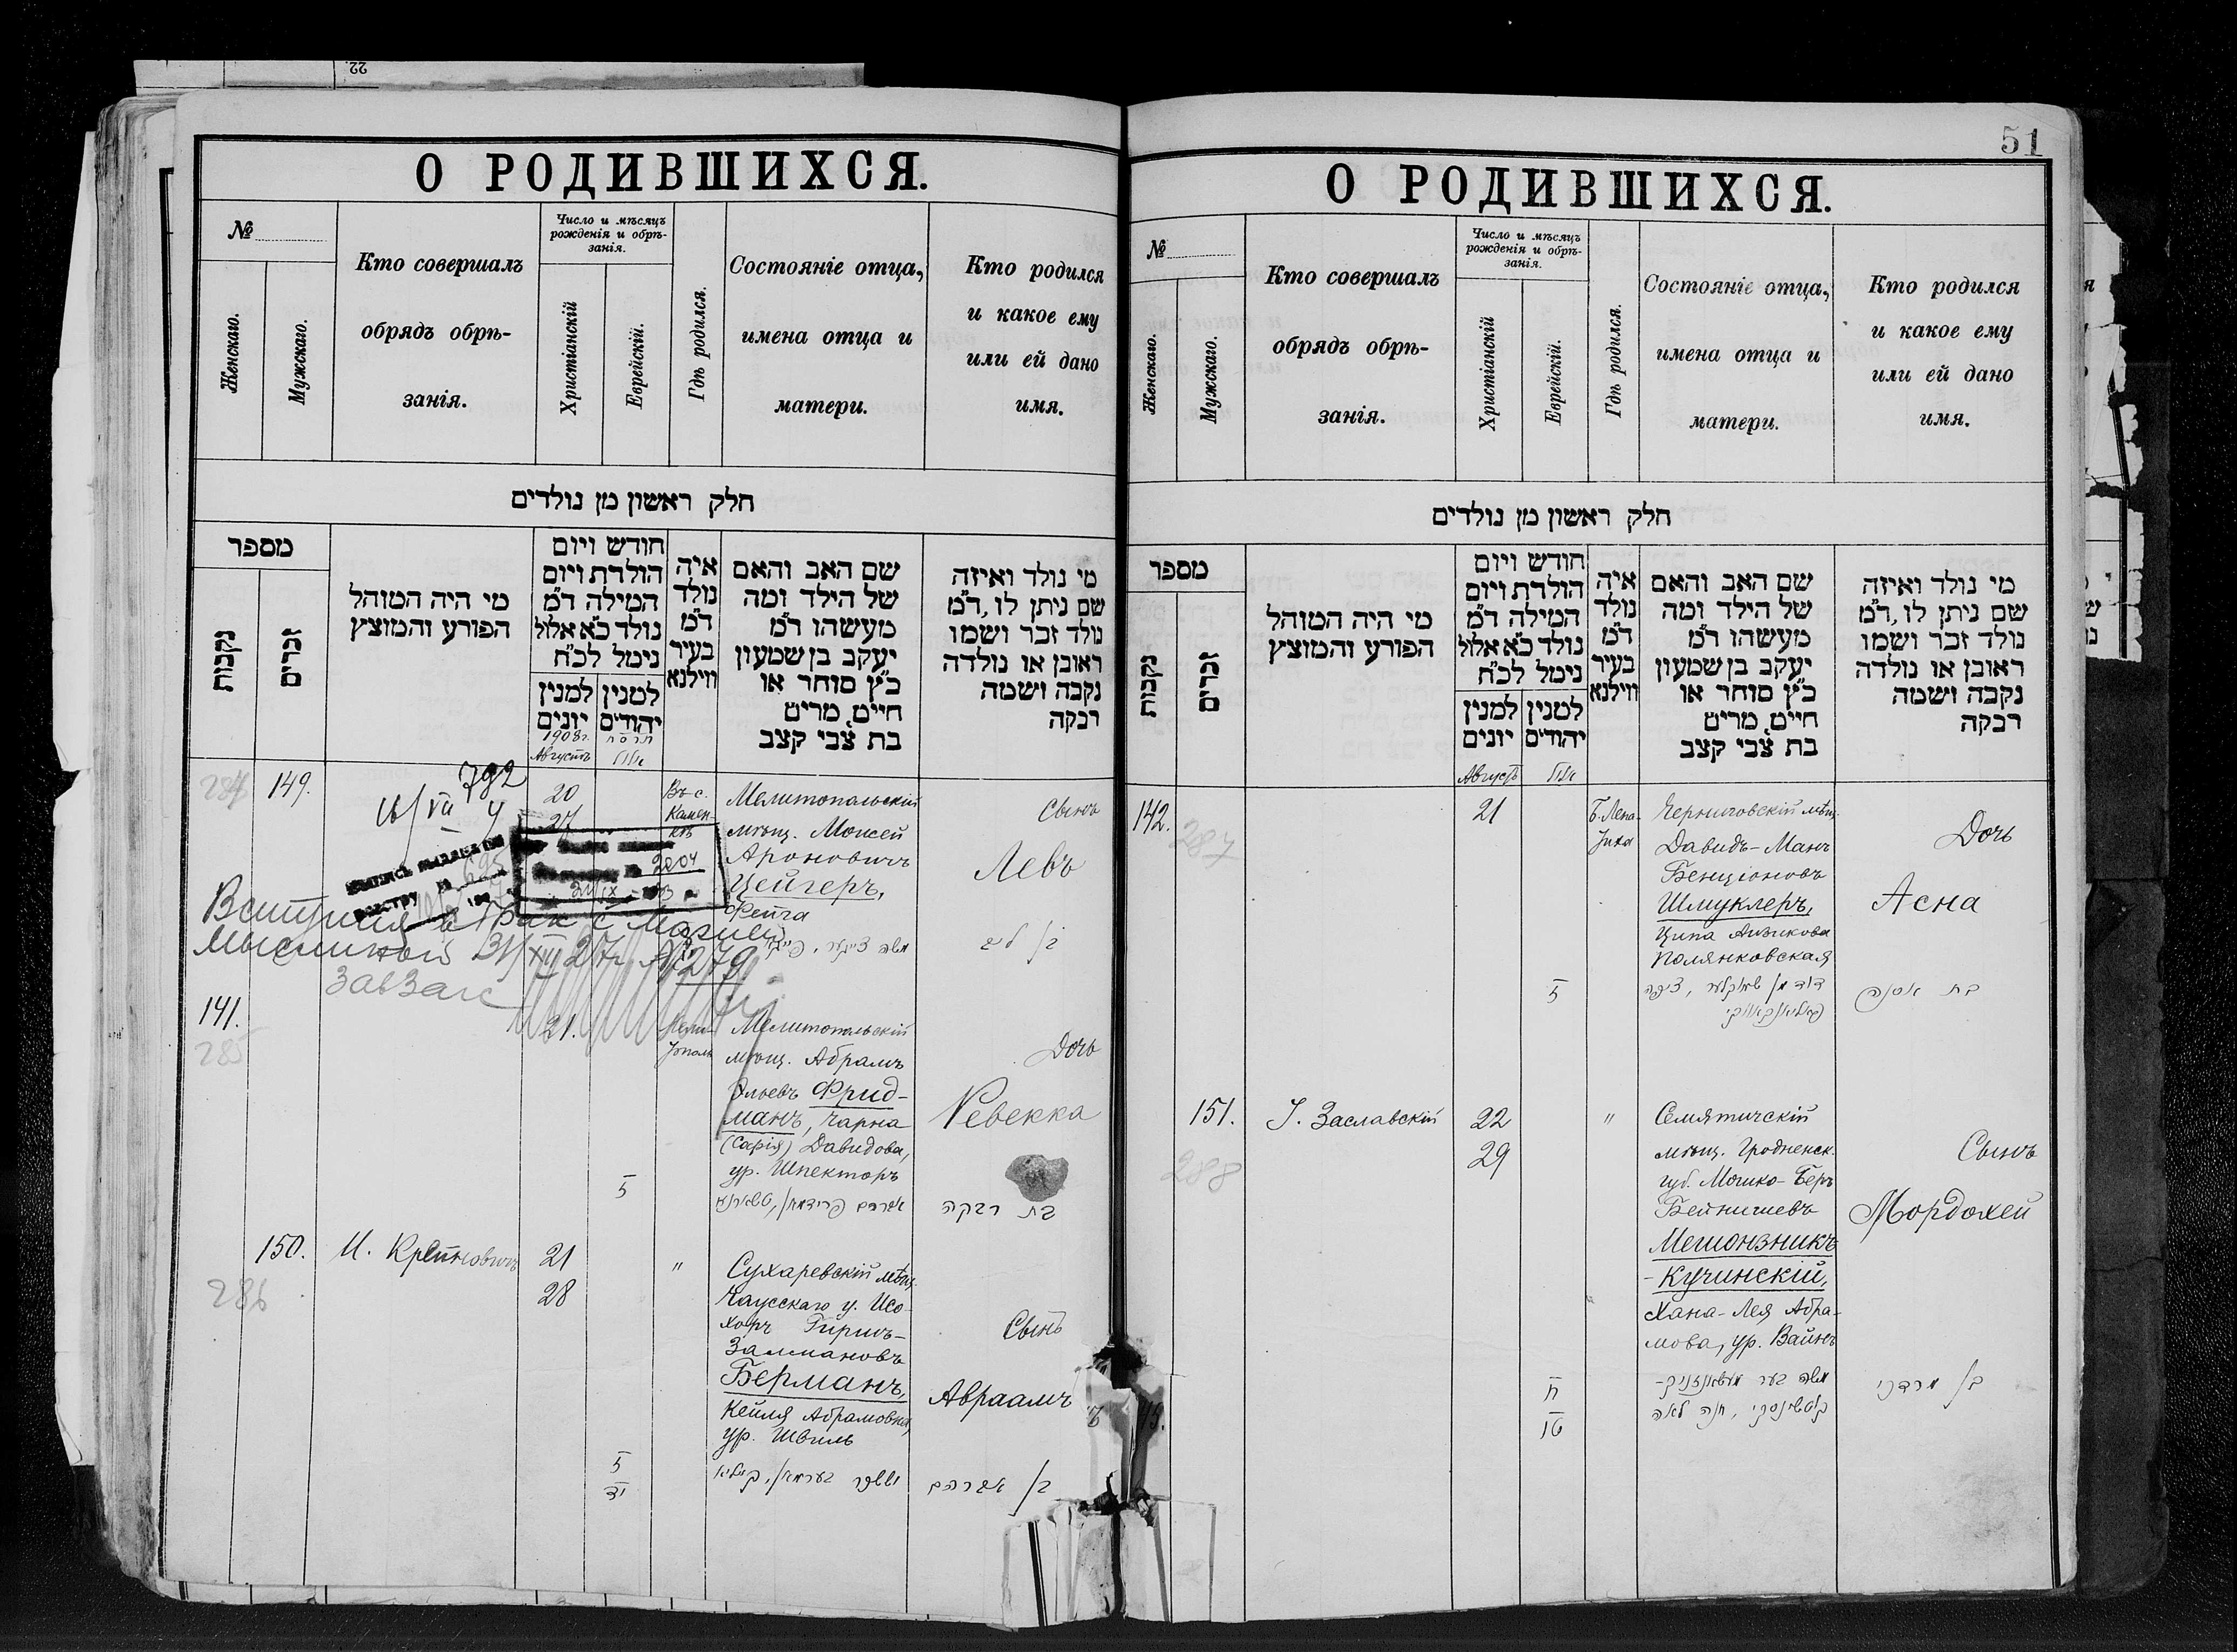 22
О РОДИВШИХСЯ.
№
Женскаго.
Мужскаго.
Кто совершалъ
обрядъ обрѣ-
занія.
Число и мѣсяцъ
рожденія и обрѣ-
занія.
Христіанскій
Еврейскій.
Гдѣ родился.
Состояніе отца,
имена отца и
матери.
Кто родился
и какое ему
или ей дано
имя.
חלק ראשון מן נולדים
מספר
נקבות
זכרים
מי היה המוהל
הפורע והמוצץ
חודש ויום
הולדת ויום
המילה ד״מ
נולד כ״א אלול
נימל לכ״ח
למנין
יונים
למנין
יהודים
איה
נולד
ד״מ
בעיר
ווילנא
שם האב והאם
של הילד ומה
מעשהו ד״מ
יעקב בן שמעון
כ״ץ סוחר או
חייט, מרים
בת צבי קצב
מי נולד ואיזה
שם ניתן לו, ד״מ
נולד זכר ושמו
ראובן או נולדה
נקבה ושמה
רבקה
1908г.
Августъ
תרס״ח
אלול
284
149.
792
20
27
Въ с.
Камен-
кѣ
Мелитопальскій
мѣщ. Моисей
Ароновичъ
Цейгеръ,
Фейга
Сынъ
Левъ
2204
Вступил в брак с
31/XII 27г. № 279
ЗавЗагс
141.
285
21.
Мели-
тополь
Мелитопольскій
мѣщ. Абрамъ
Эльевъ Фрид-
манъ, Чарна
(Сарія) Давидова,
ур. Шпекторъ
Дочь
Ревекка
אברהם פרידמאן,
בת רבקה
150.
286
И. Крейновичъ
21
28
"
Сухаревскій мѣщ.
Чаусскаго у. Исо-
хоръ Гиршъ-
Залмановъ
Берманъ,
Кейля Абрамовна,
ур. Швиль
Сынъ
Авраамъ
ז
יד
יששכר בערמאן, קיילא
בן אברהם
51
О РОДИВШИХСЯ.
№
Женскаго.
Мужскаго.
Кто совершалъ
обрядъ обрѣ-
занія.
Число и мѣсяцъ
рожденія и обрѣ-
занія.
Христіанскій
Еврейскій.
Гдѣ родился.
Состояніе отца,
имена отца и
матери.
Кто родился
и какое ему
или ей дано
имя.
חלק ראשון מן נולדים
מספר
נקבות
זכרים
מי היה המוהל
הפורע והמוצץ
חודש ויום
הולדת ויום
המילה ד״מ
נולד כ״א אלול
נימל לכ״ח
למנין
יונים
למנין
יהודים
איה
נולד
ד״מ
בעיר
ווילנא
שם האב והאם
של הילד ומה
מעשהו ד״מ
יעקב בן שמעון
כ״ץ סוחר או
חייט, מרים
בת צבי קצב
מי נולד ואיזה
שם ניתן לו, ד״מ
נולד זכר ושמו
ראובן או נולדה
נקבה ושמה
רבקה
Августъ
אלול
142.
287
21
Б. Лепа-
тиха
Черниговскій мѣщ.
Давидъ-Манъ
Бенціоновъ
Шмуклеръ,
Ципа Аизикова
Полянковская
Дочь
Асна
ז
דוד מן שמוקלער, ציפה
פאליאנקאווסקי
בת אסנה
151.
288
І. Заславскій
22
29
"
Семятичскій
мѣщ. Гродненск.
губ. Мошко-Беръ
Бейнишевъ
Мешонзникъ
-Кучинскій,
Хана-Лея Абра-
мова, ур. Вайнъ
Сынъ
Мордохей
ח
טו
משה בער מעשאנזניק-
קוטשינסקי, חנה לאה
בן מרדכי